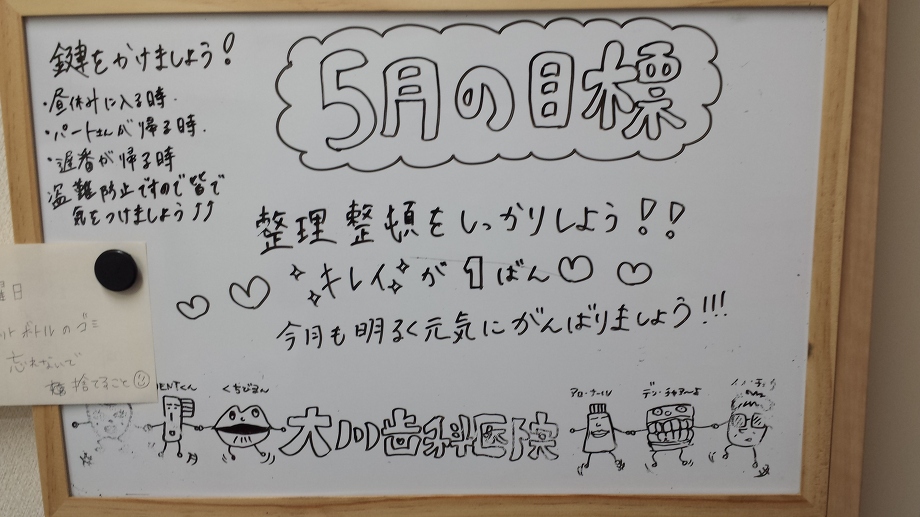 鍵をかけましょう!
・昼休みに入る時.
・パートさんが帰る時.
・遅番が帰る時
盗難防止ですので皆で
気をつけましょう!!
5月の目標
整理整頓をしっかりしよう!!
キレイが1ばん♡ ♡
今月も明るく元気にがんばりましょう!!!
曜日
ットボトルのゴミ
忘れないで
捨てること
ENTくん
くちびるん
大川歯科医院
アロ・ナール
デン・チャアーよ